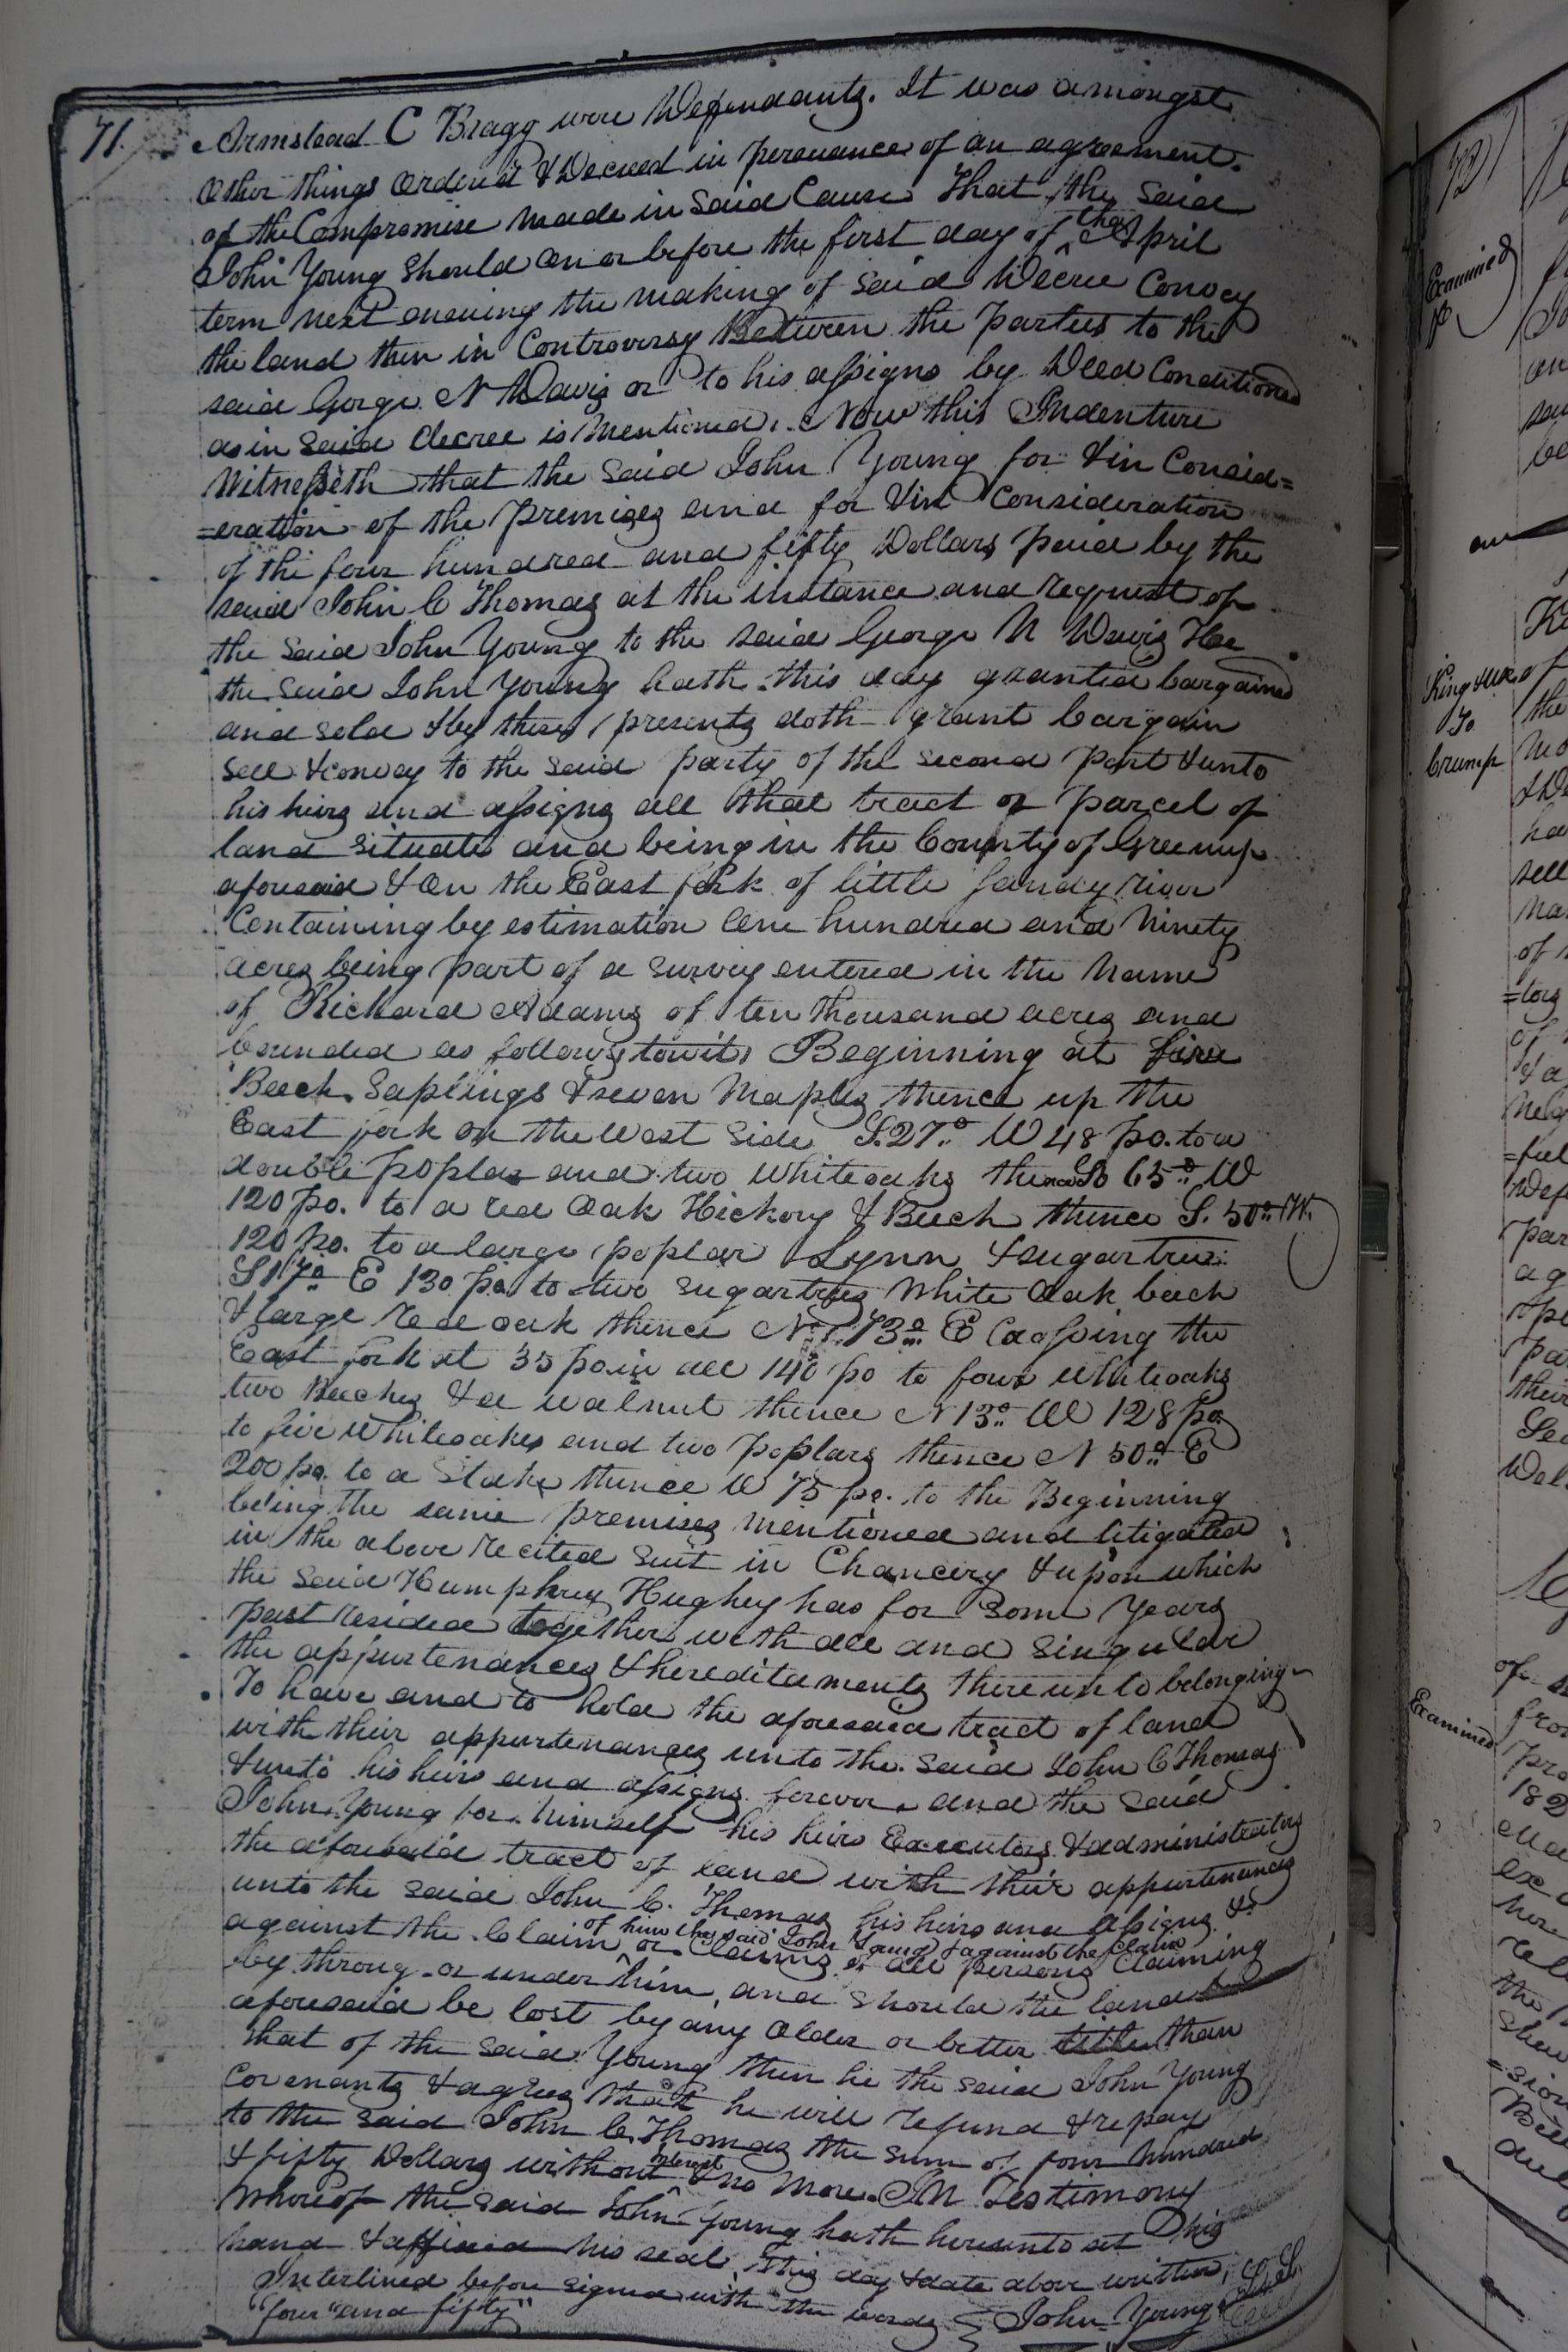 71.
Armstead C Bragg were Defendants. It was amongst
other things ordered & Decreed in persuance of an agreement
of the Compromise made in said Cause That the said
John Young should on or before the first day of the April
term next ensuing the making of said Decree Convey
the land then in Controversy Between the Parties to the
said Gorge N Davis or to his assigns by Deed Conditioned
as in said decree is Mentioned. Now this Indenture
Witnesseth that the said John Young for & in Consid=
=eration of the premises and for & in Consideration
of the four hundred and fifty Dollars paid by the
said John C Thomas at the instance and request of
the said John Young to the said George N Davis He
the said John Young hath this day granted bargained
and sold & by these presents doth grant bargain
sell & convey to the said party of the second part & unto
his heirs and assigns all that tract or parcel of
land situate and being in the County of Greenup
aforesaid & on the East fork of little Sandy river
Containing by estimation one hundred and Ninety
acres being part of a survey entered in the Name
of Richard Adams of ten thousand acres and
bounded as follows towit, Beginning at five
Beech Saplings & seven Maples thence up the
East fork on the West side S.27° W 48 po. to a
double poplar and two Whiteoaks thence So 65° W
120 po. to a red Oak Hickory & Beech thence S. 50° W.
120 po. to a large poplar Lynn & sugartree:
S17° E 130 po. to two sugartrees White Oak beech
& large red oak thence N. 73° E Crossing the
East fork at 35 po. in all 140 po to four Whiteoaks
two Beeches & a walnut thence N 13° W 128 po.
to five Whiteoakes and two poplars thence N 50° E
200 po. to a Stake thence W 75 po. to the Beginning
being the same premises mentioned and litigated
in the above recited suit in Chancery & upon which
the said Humphrey Hughey has for some years
past resided together with all and singular
the appurtenances & hereditaments thereunto belonging
To have and to hold the aforesaid tract of land
with their appurtenances unto the said John C Thomas
& unto his heirs and assigns forever, and the said
John Young for himself his heirs Executors & administrators
the aforesaid tract of land with their appurtenances
unto the said John C. Thomas his heirs and assigns &
of him the said John Young & against the claim
against the Claim or Claims of all persons Claiming
by throug or under him, and should the land
aforesaid be lost by any older or better title than
that of the said Young then he the said John Young
Covenants & agrees that he will refund & repay
to the said John C. Thomas the sum of four hundred
& fifty Dollars without interest & no more. In Testimony
whereof the said John Young hath hereunto set his
hand & affixed his seal, this day & date above written,
Interlined before signed with the words
"four "and fifty"
John Young
Examined
King & ux
To
Crump
Examined